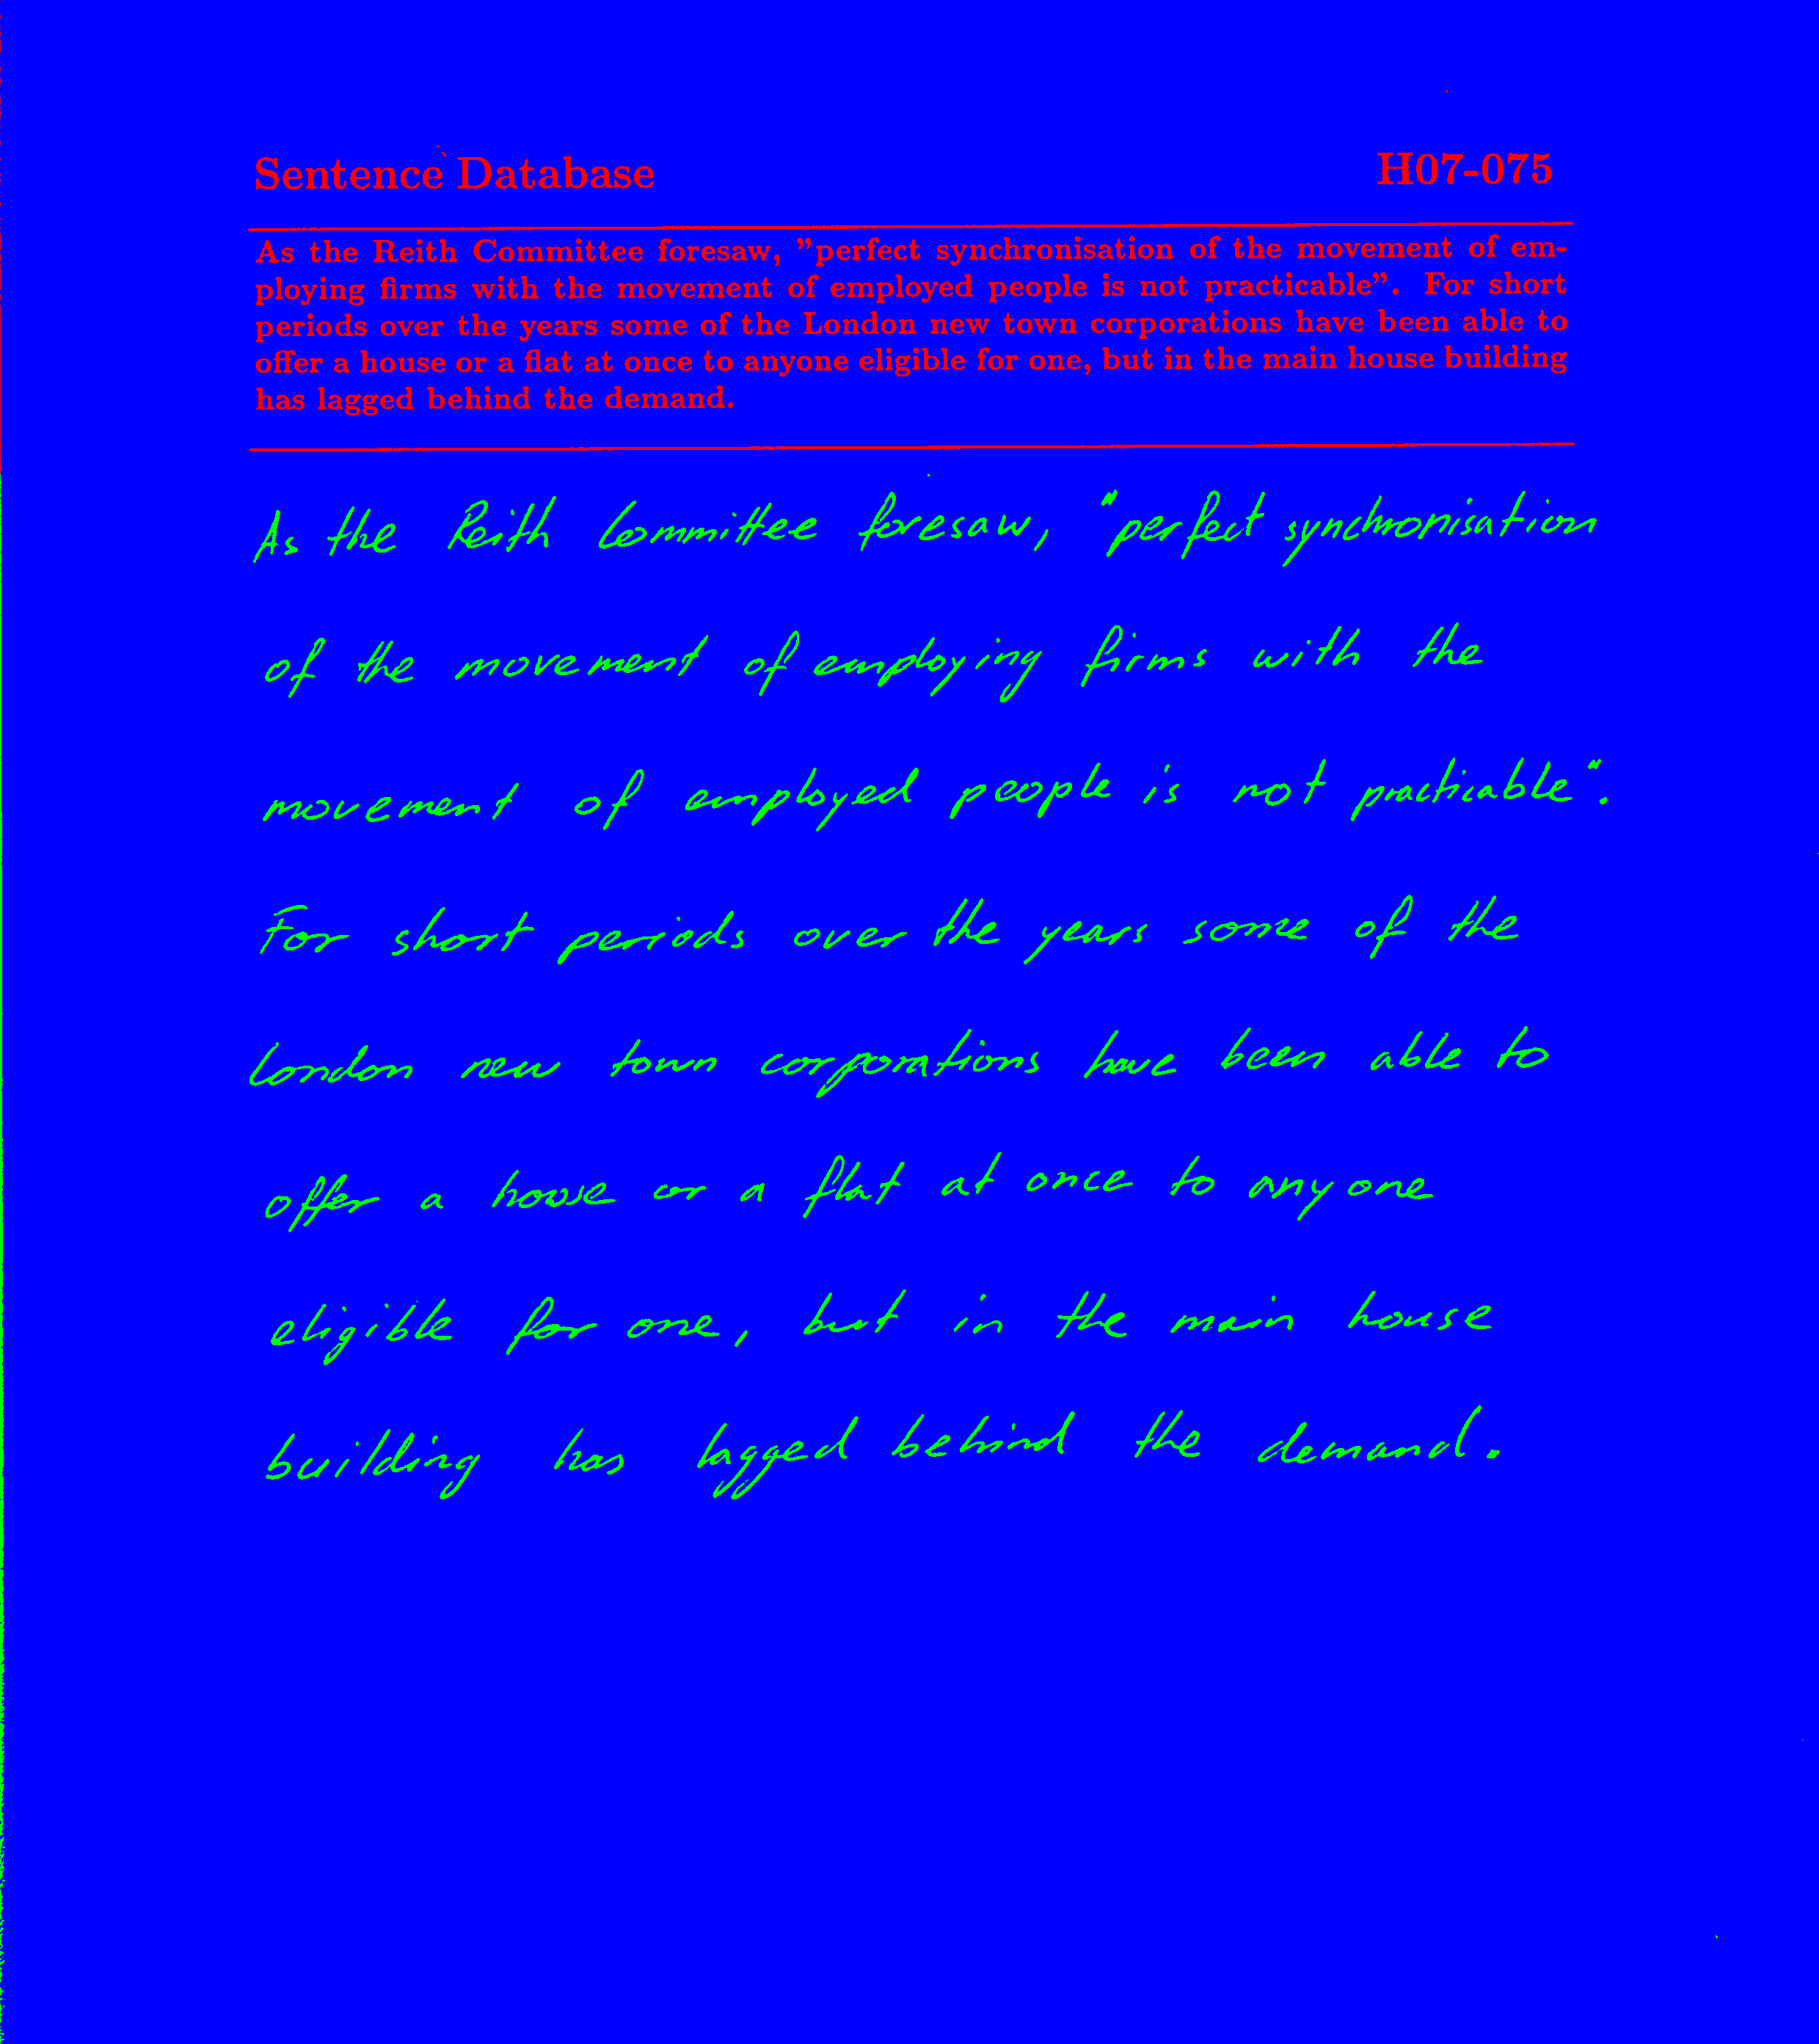 Sentence Database H07-075
As the Reith Committee foresaw, "perfect synchronisation of the movement of em-
ploying firms with the movement of employed people is not practicable". For short
periods over the years some of the London new town corporations have been able to
offer a house or a flat at once to anyone eligible for one, but in the main house building
has lagged behind the demand.
As the Reith Committee foresaw, "perfect synchronisation
of the movement of employing firms with the
movement of employed people is not practicable".
For short periods over the years some of the
London new town corporations have been able to
offer a house or a flat at once to anyone
eligible for one, but in the main house
building has lagged behind the demand.